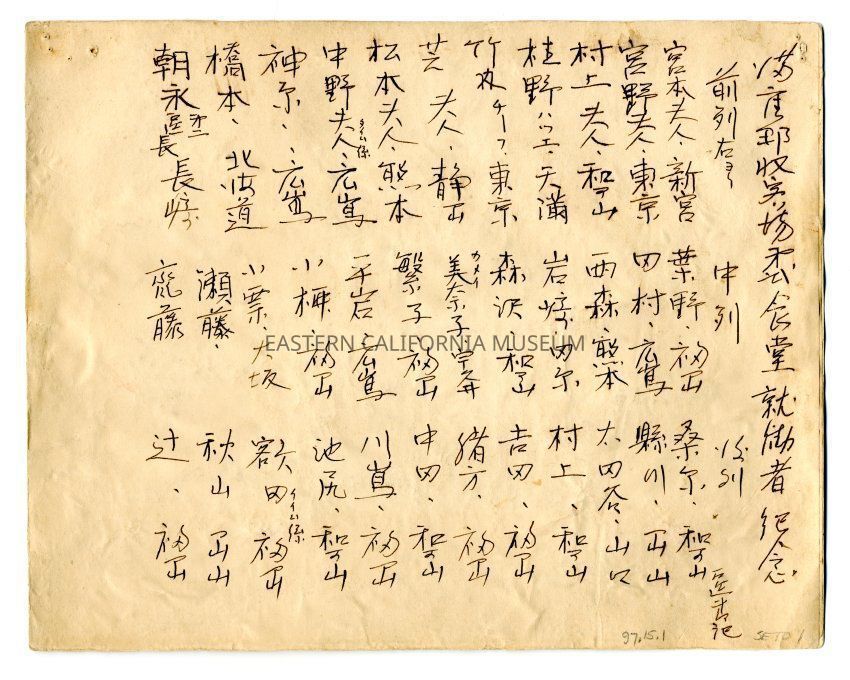 満座那收容場 食堂就働者紀念
前列右ヨリ
宮本夫人、新宮
宮野夫人、東京
村上夫人、和歌山
桂野ハツエ、天満
竹内チーフ、東京
夫人、静岡
松本夫人、熊本
中野夫人、タイム係 広嶌
神原、広嶌
橋本、北海道
朝永 区長 長崎
中列
葉野、福岡
田村、広嶌
西森、熊本
岩崎
森沢、和歌山
美奈子
繁子 福岡
平岩、広嶌
小柳、福岡
小栗、大坂
瀬藤、
斎藤
後列
桑原、和歌山
縣川、岡山
太田谷、山口
村上、和歌山
吉田、福岡
緒方、福岡
中田、和歌山
川嶌、福岡
池尻、和歌山
額田 タイム係 福岡
秋山 岡山
辻、福岡
EASTERN CALIFORNIA MUSEUM
97.15.1
SETO 1